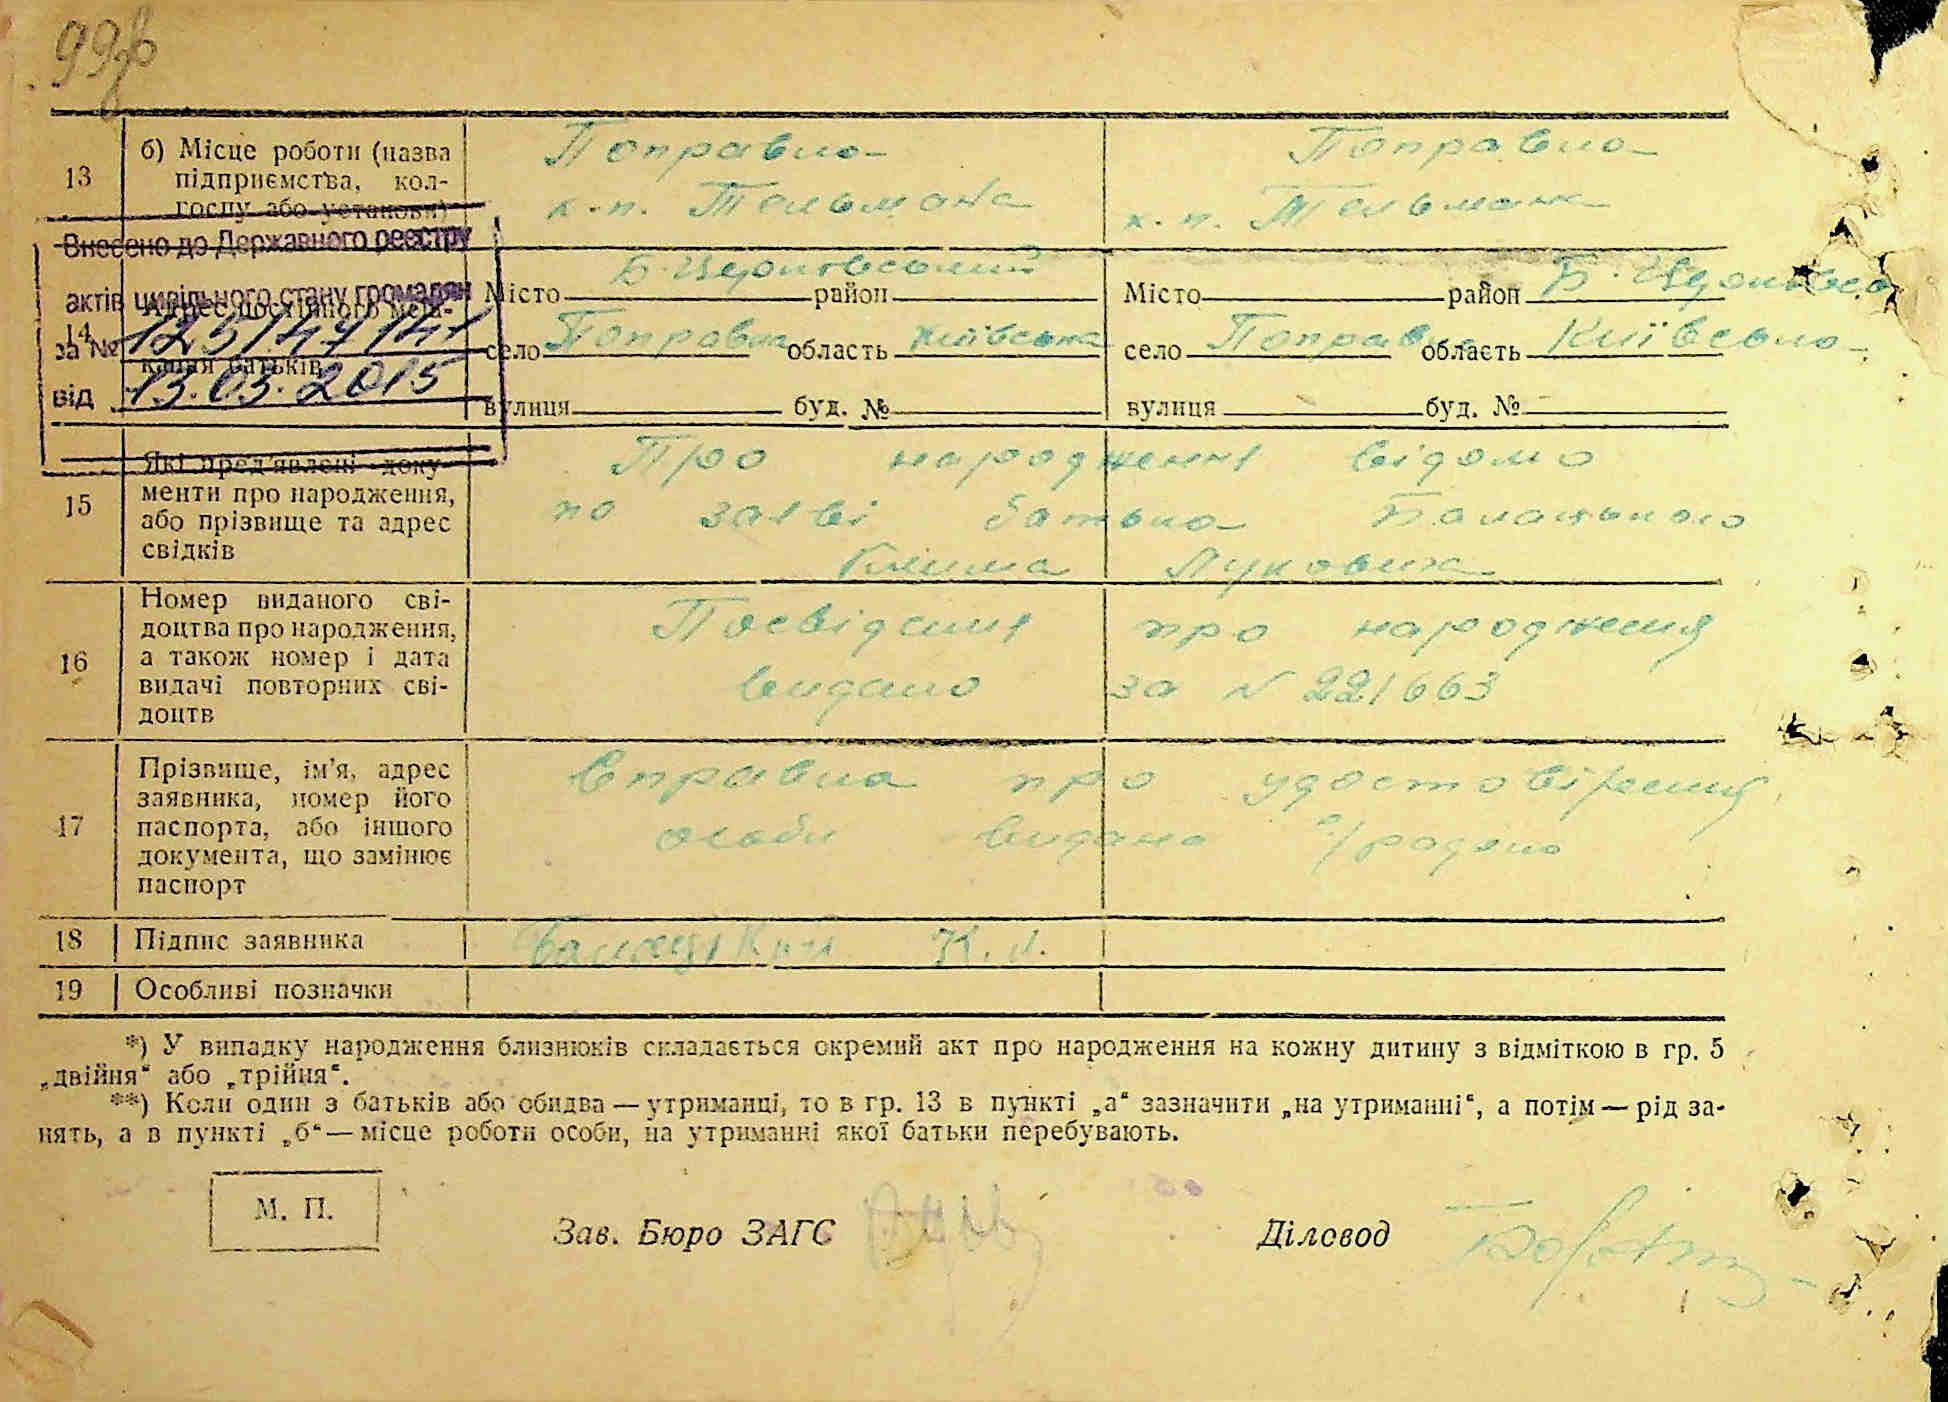 99
13
б) Місце роботи (назва
підприємства, кол-
госпу або установи)
Поправка
к.п. Тельмана
Поправка
к.п. Тельмана
Внесено до Державного реєстру
актів цивільного стану громадян
за № 12514714
від 13.03.2015
14
Адрес постійного меш-
кання батьків
Б. Церківський
Місто район
село Поправка область Київська
вулиця буд. №
Місто район Б. Церківсь
село Поправка область Київська
вулиця буд. №
15
Які пред'явлені доку-
менти про народження,
або прізвище та адрес
свідків
Про народження відомо
по заяві батька
Клима Луковича
16
Номер виданого сві-
доцтва про народження,
а також номер і дата
видачі повторних сві-
доцтв
Посвідення про народження
видано за N 221663
17
Прізвище, ім'я, адрес
заявника, номер його
паспорта, або іншого
документа, що замінює
паспорт
Справка про удостовірения
особи видана с/радою
18
Підпис заявника
К. Л.
19
Особливі позначки
*) У випадку народження близнюків складається окремий акт про народження на кожну дитину з відміткою в гр. 5
„двійня“ або „трійня“.
**) Коли один з батьків або обидва — утриманці, то в гр. 13 в пункті „а“ зазначити „на утриманні“, а потім — рід за-
нять, а в пункті „б“ — місце роботи особи, на утриманні якої батьки перебувають.
М. П.
Зав. Бюро ЗАГС
Діловод